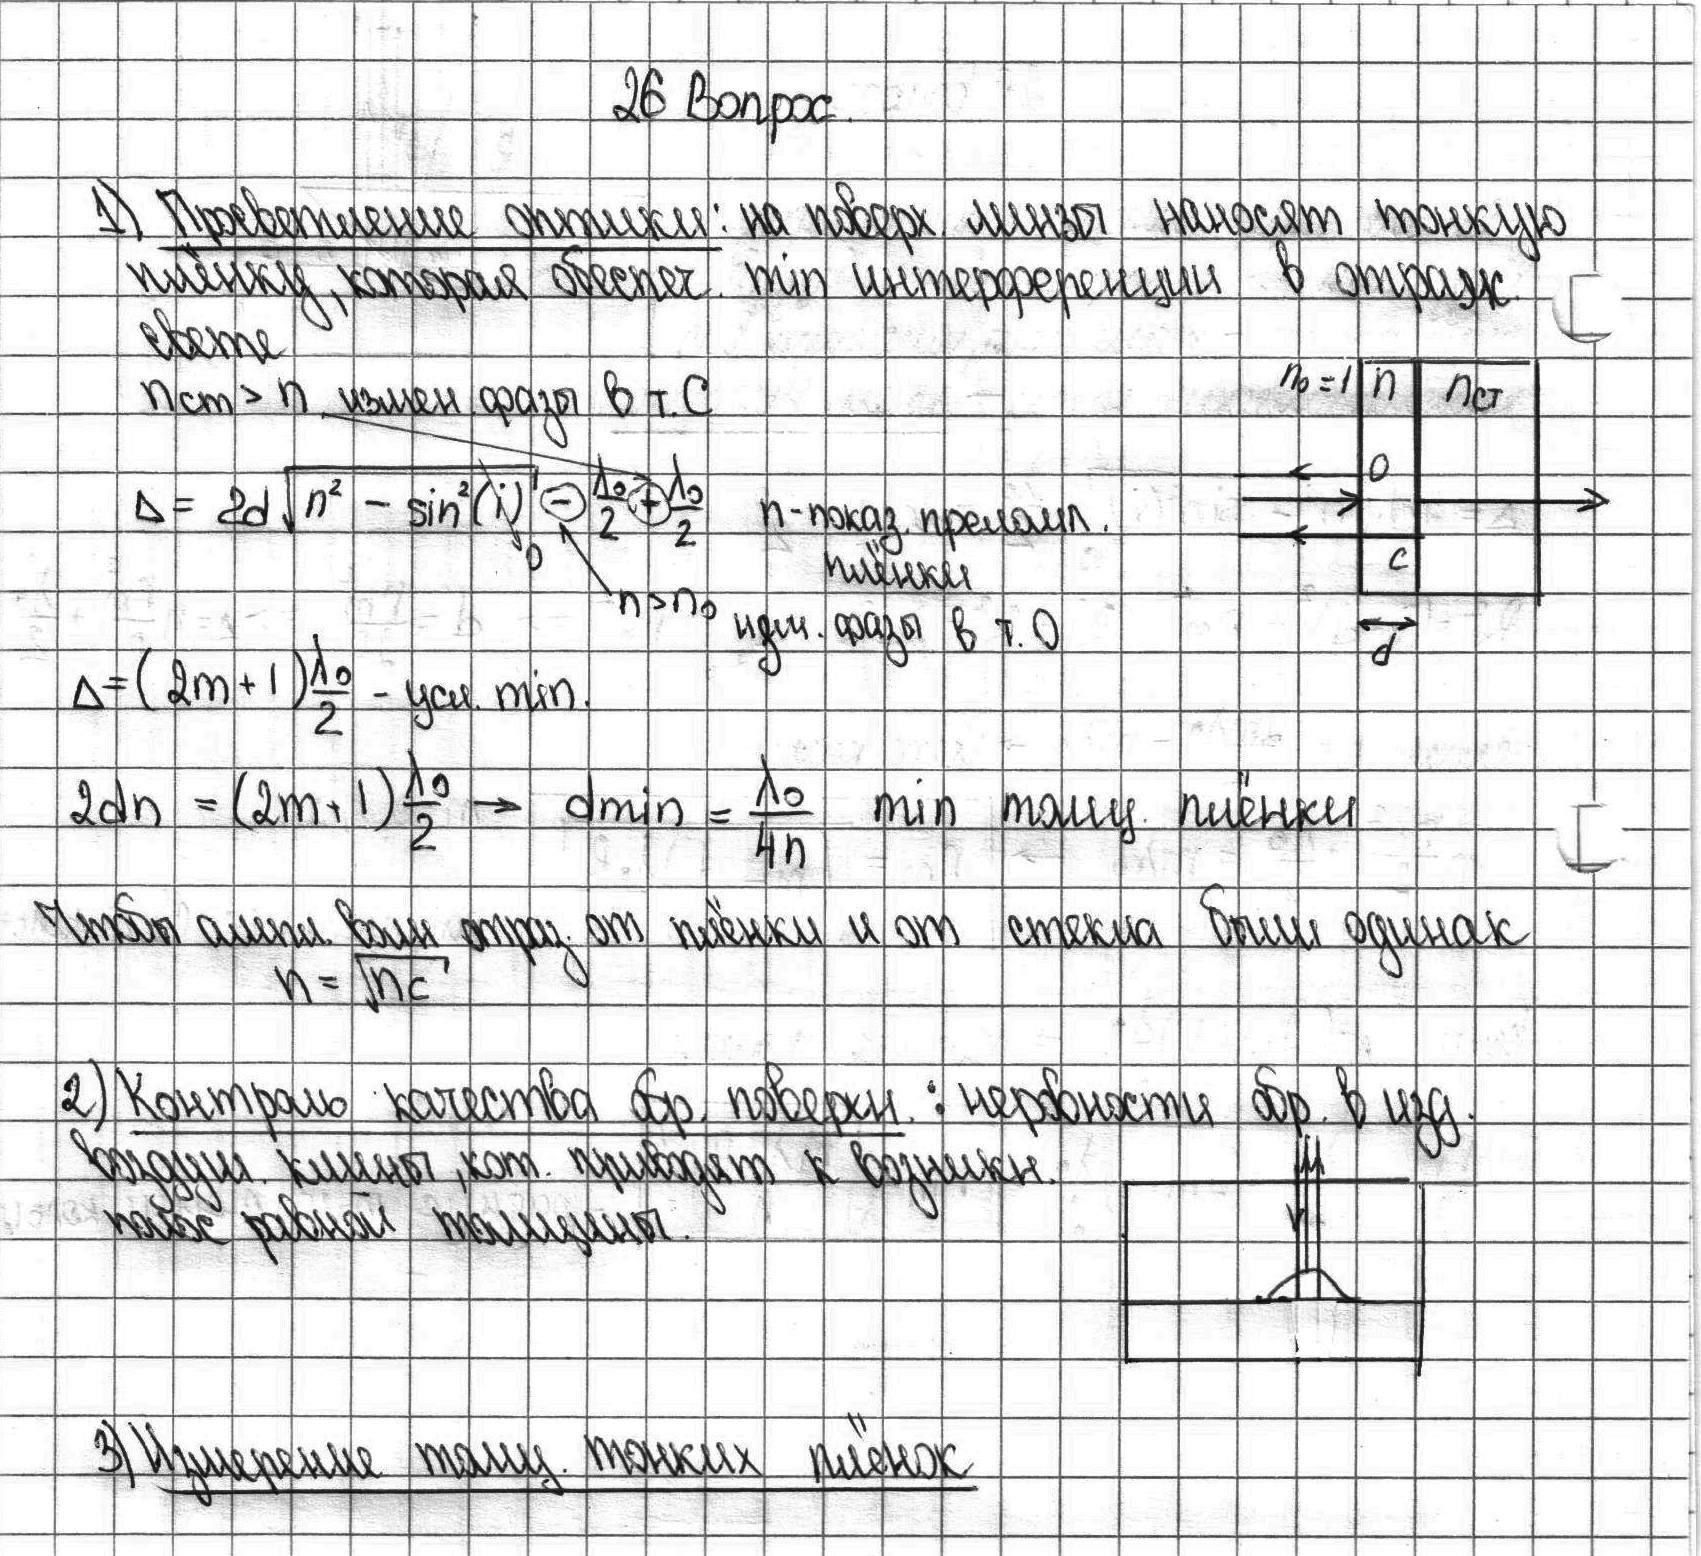 26 Вопрос.
1) Просветление оптики: на поверх. линзы наносят тонкую
плёнку, которая обеспеч. min интерференции в отраж.
свете
nст > n измен. фазы в т. С
n₀ = 1 n nст
Δ = 2d√(n² − sin²(i)) ⊖ λ₀/2 ⊕ λ₀/2 n - показ. преломл.
0 плёнки
O
C
n > n₀ изм. фазы в т. О
d
Δ = (2m + 1) λ₀/2 - усл. min.
2dn = (2m + 1) λ₀/2 → dmin = λ₀/4n min толщ. плёнки
Чтобы ампл. волн отраз. от плёнки и от стекла были одинак
n = √nс
2) Контроль качества обр. поверхн. : неровности обр. в изд.
воздуш. клины, кот. приводят к возникн.
полос равной толщины.
3) Измерение толщ. тонких плёнок